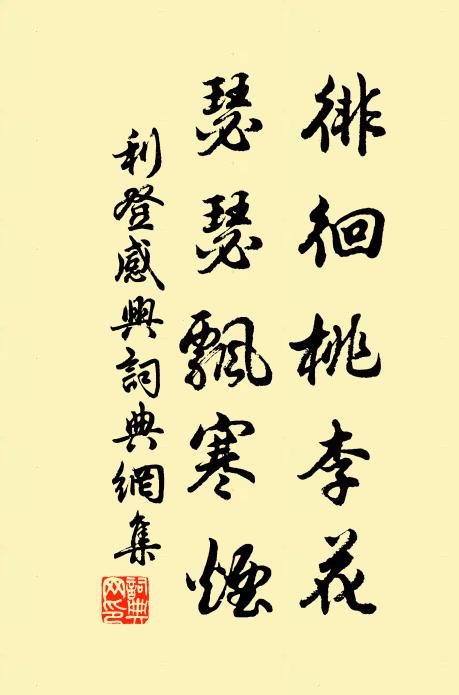 徘徊桃李花
瑟瑟飄寒煙
利登感興詞典網集
詞典網印